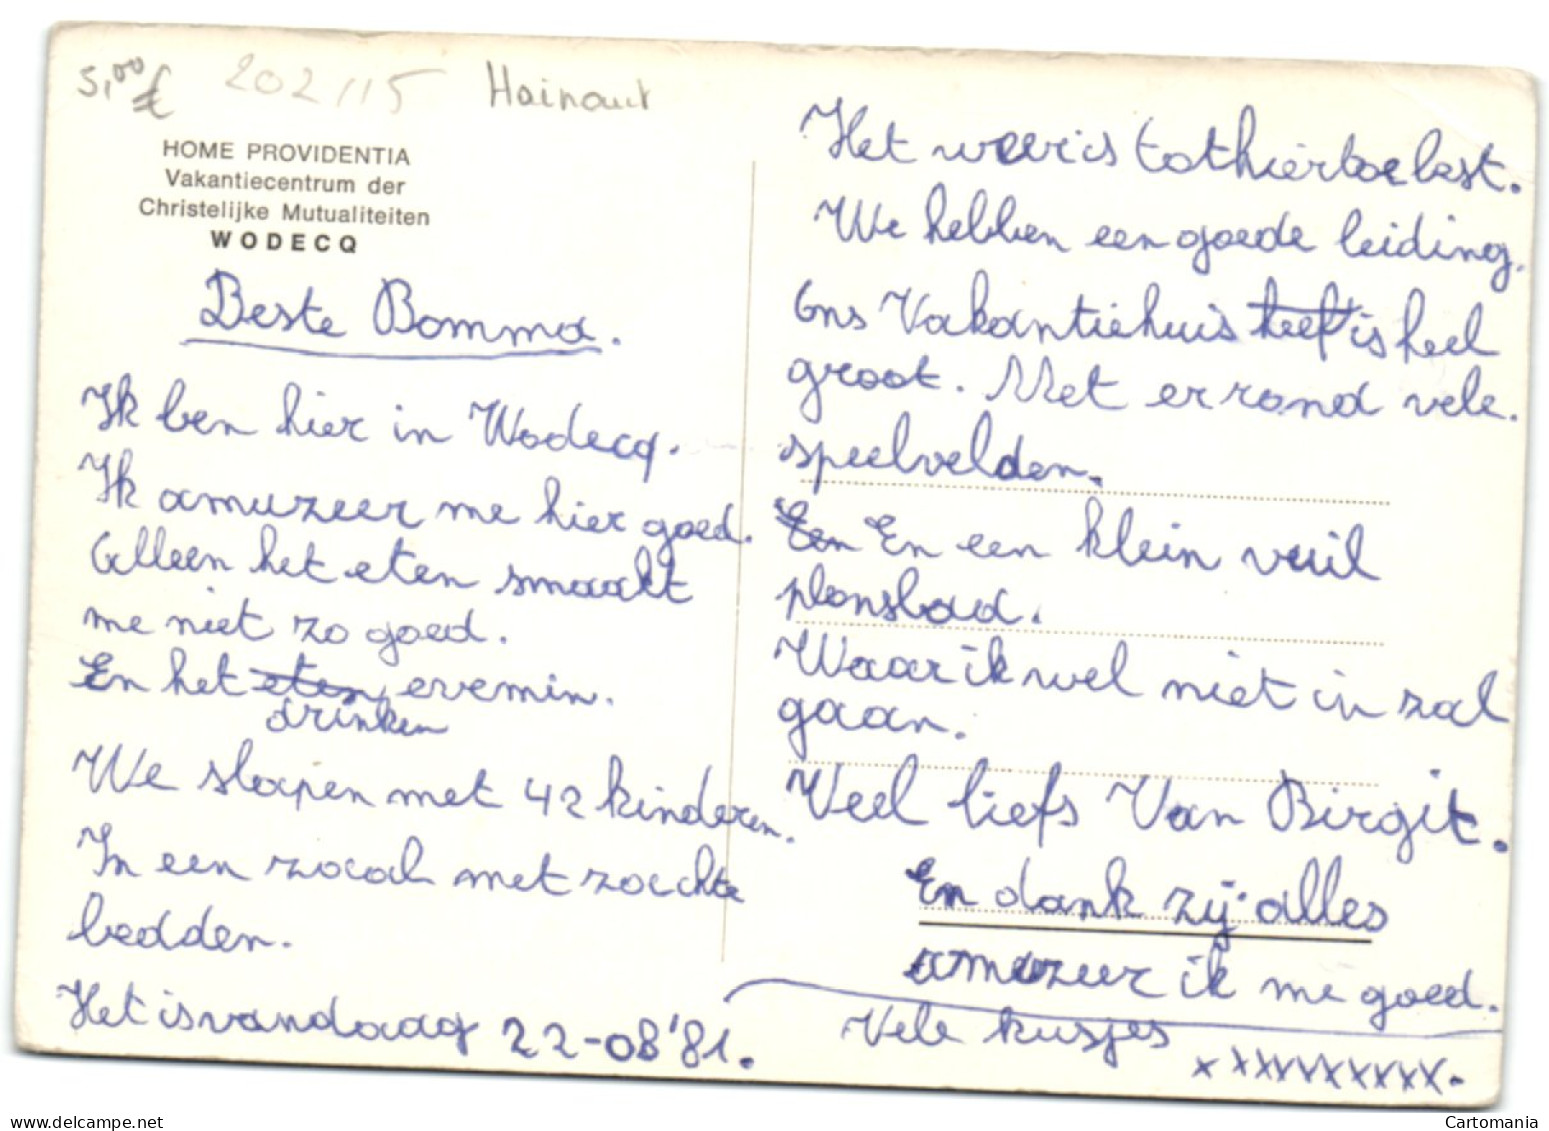 5,00 €
202/15
Hainaut
HOME PROVIDENTIA
Vakantiecentrum der
Christelijke Mutualiteiten
WODECQ
Beste Bomma.
Ik ben hier in Wodecq.
Ik amuzeer me hier goed.
Alleen het eten smaakt
me niet zo goed.
En het eten evemin.
drinken
We slapen met 42 kinderen.
In een zaal met zachte
bedden.
Het is vandaag 22-08'81.
Het weer is tot hiertoe best.
We hebben een goede leiding.
Ons Vakantiehuis heeft is heel
groot. Met er rond vele.
speelvelden.
Een En een klein vuil
plonsbad.
Waar ik wel niet in zal
gaan.
Veel liefs Van Birgit.
En dank zij alles
amuzeer ik me goed.
Vele kusjes
xxxxxxxxxx.
delcampe.net
Cartomania